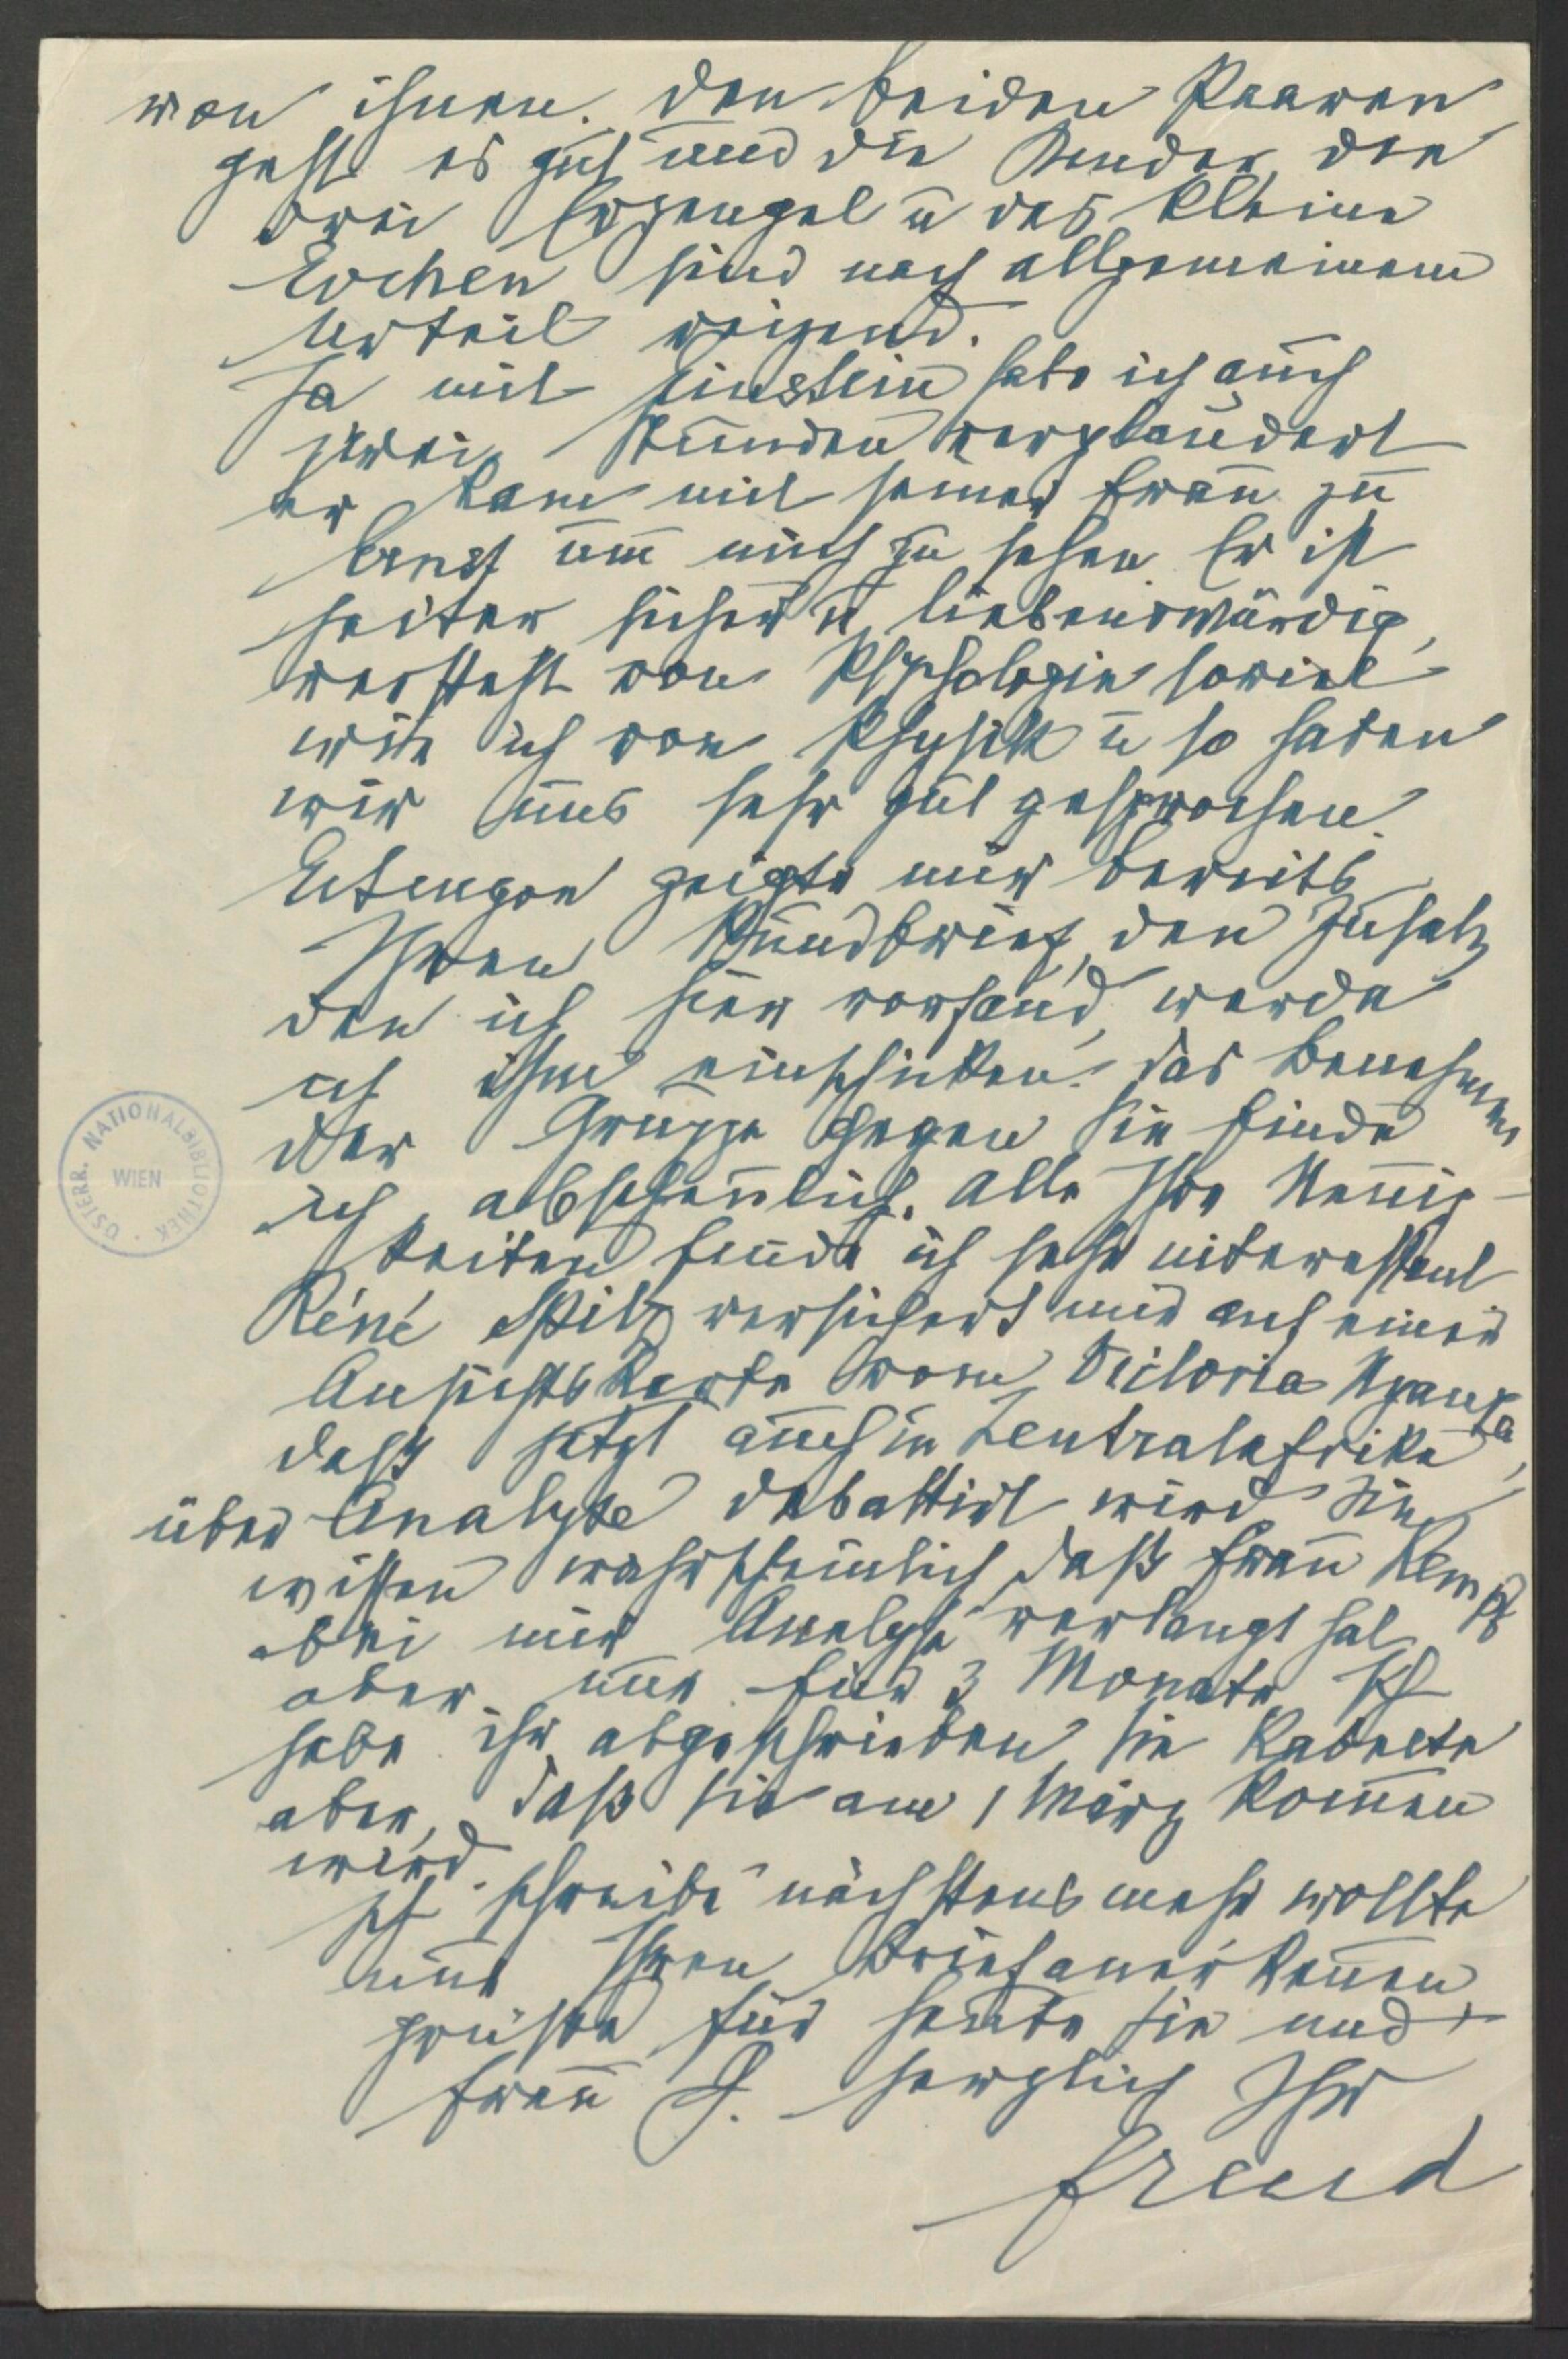 von ihnen. Den beiden Paaren
geht es gut und die Kinder, die
drei Erzengel u das kleine
Evchen sind nach allgemeinem
Urteil reizend.
Ja mit Einstein habe ich auch
zwei Stunden verplaudert
er kam mit seiner Frau zu
Ernst um mich zu sehen. Er ist
heiter, sicher u liebenswürdig,
versteht von Psychologie soviel
wie ich von Physik u so haben
wir uns sehr gut gesprochen.
Eitingon zeigte mir bereits
Ihren Rundbrief, den Zusatz
den ich hier vorfand, werde
ich ihm einschicken. Das Benehmen
der Gruppe gegen Sie finde
ich abscheulich. Alle Ihre Neuig-
keiten finde ich sehr interessant
Réné Spitz versichert mir auf einer
Ansichtskarte vom Victoria Nyanza
daß jetzt auch in Zentralafrika
über Analyse debattirt wird Sie
wissen wahrscheinlich, daß Frau Kempf
bei mir Analyse verlangt hat
aber nur für 3 Monate Ich
habe ihr abgeschrieben, sie kabelte
aber, daß sie am 1 März kommen
wird.
Ich schreibe nächstens mehr wollte
nur Ihren Brief anerkennen
grüße für heute Sie und
Frau G. herzlich Ihr
Freud
ÖSTERR. NATIONALBIBLIOTHEK
WIEN